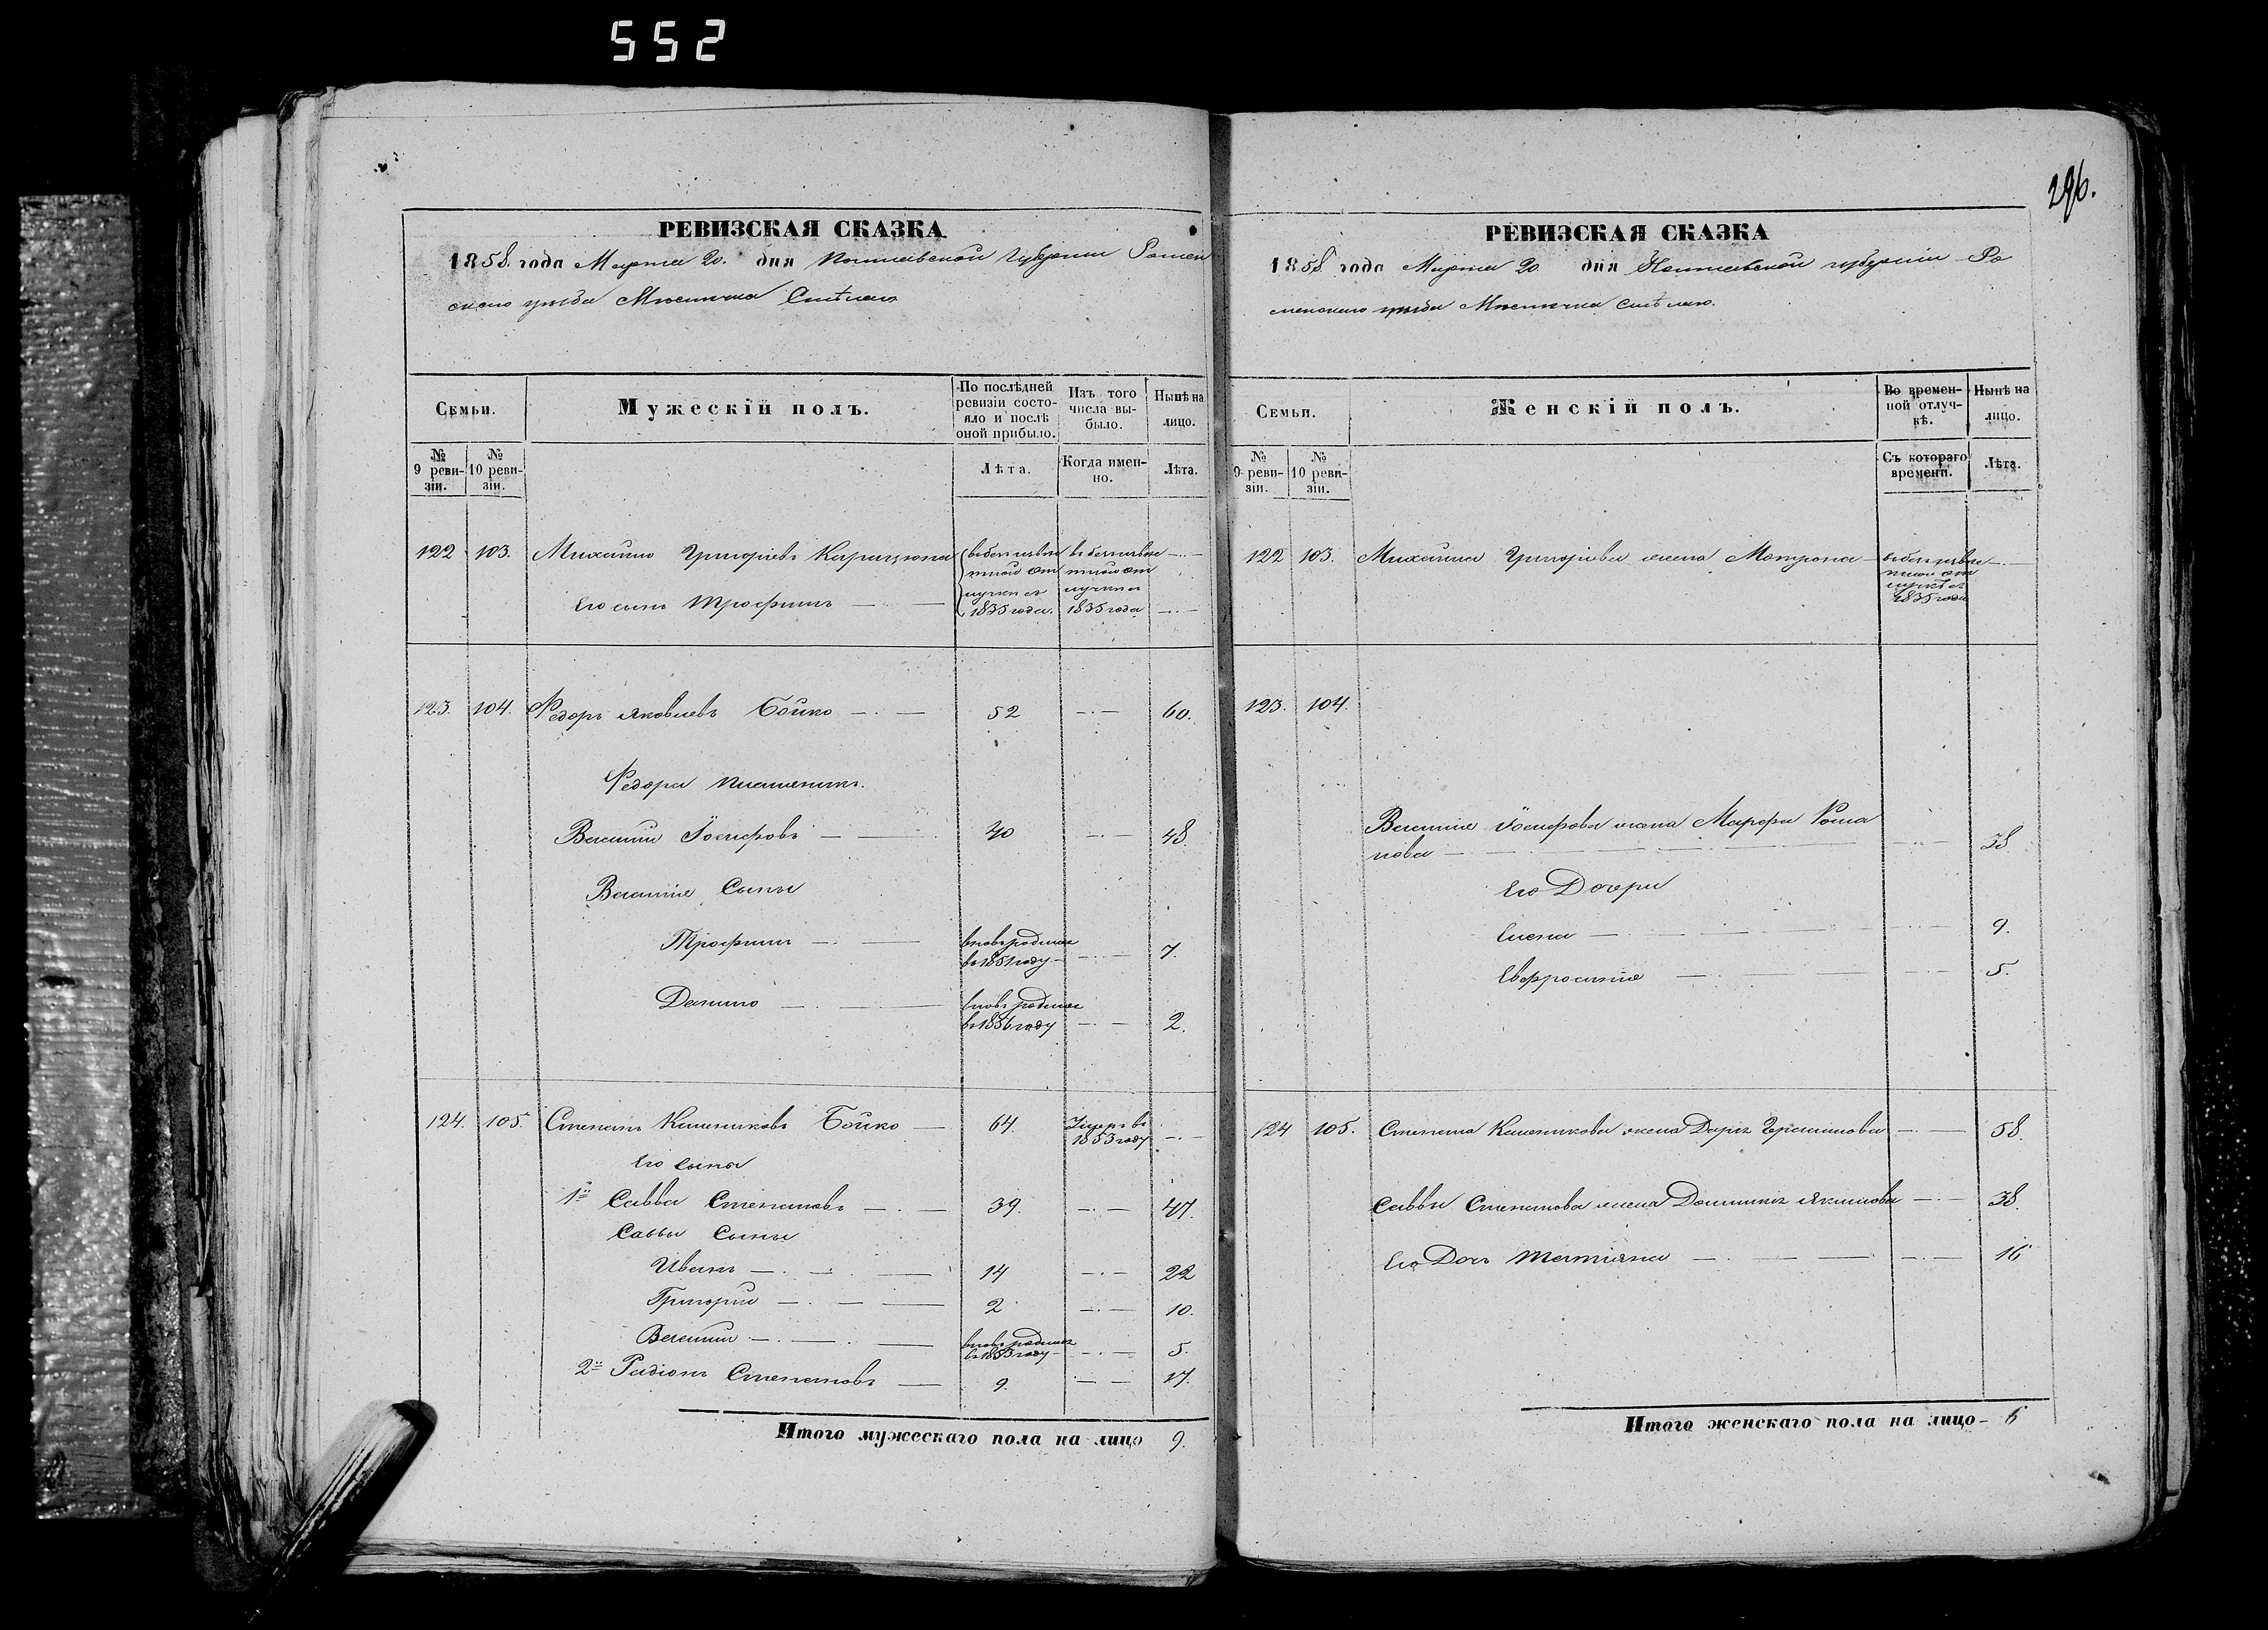 552
296.
РЕВИЗСКАЯ СКАЗКА
1858. года Марта 20. дня Полтавской Губернии Ромен
скаго уѣзда Мѣстечка Смѣлаго
Семьи.
Мужескій полъ.
По послѣдней ревизіи состояло и послѣ оной прибыло.
Изъ того числа выбыло.
Нынѣ на лицо.
№ 9 ревизіи.
№ 10 ревизіи.
Лѣта.
Когда именно.
Лѣта.
122 103. Михайло Григорьевъ в безъизвѣс в безъизвѣс
тной от тной от
лучки съ лучки съ
Его сынъ Трофимъ 1835 года. 1835 года
123. 104. Федоръ Яковлевъ Бойко 52 60.
Федора племенникъ.
Василий Іосифовъ 40 48.
Василія Сыны
Трофимъ вновь родился
в 1851 году 7.
Данило вновь родился
в 1856 году 2.
124. 105. Степанъ Бойко 64 Умеръ въ
1853 году
Его сыны
1й Савва Степановъ 39. 47.
Саввы Сыны
Иванъ 14 22
Григорий 2 10.
Василий вновь родился
в 1853 году 5.
2й Радіонъ Степановъ 9. 17.
Итого мужескаго пола на лицо 9.
РЕВИЗСКАЯ СКАЗКА
1858 года Марта 20 дня Полтавской губерніи Ро
менскаго уѣзда Мѣстечка Смѣлаго.
Семьи.
Женскій полъ.
Во временной отлучкѣ.
Нынѣ на лицо.
№ 9 ревизіи.
№ 10 ревизіи.
Съ котораго времени.
Лѣта.
122 103. Михайла Григорьева жена Матрона в безъизвѣс
тной от
лучкѣ съ
1835 года
123. 104.
Василія Іосифова жена Марфа Рома
нова 38.
Его Дочери
Елена 9.
Евфросинія 5.
124 105. Степана жена Дарья Герасимова 58.
Саввы Степанова жена Домникія Якимова 38.
Его Дочь Татіяна 16
Итого женскаго пола на лицо 6